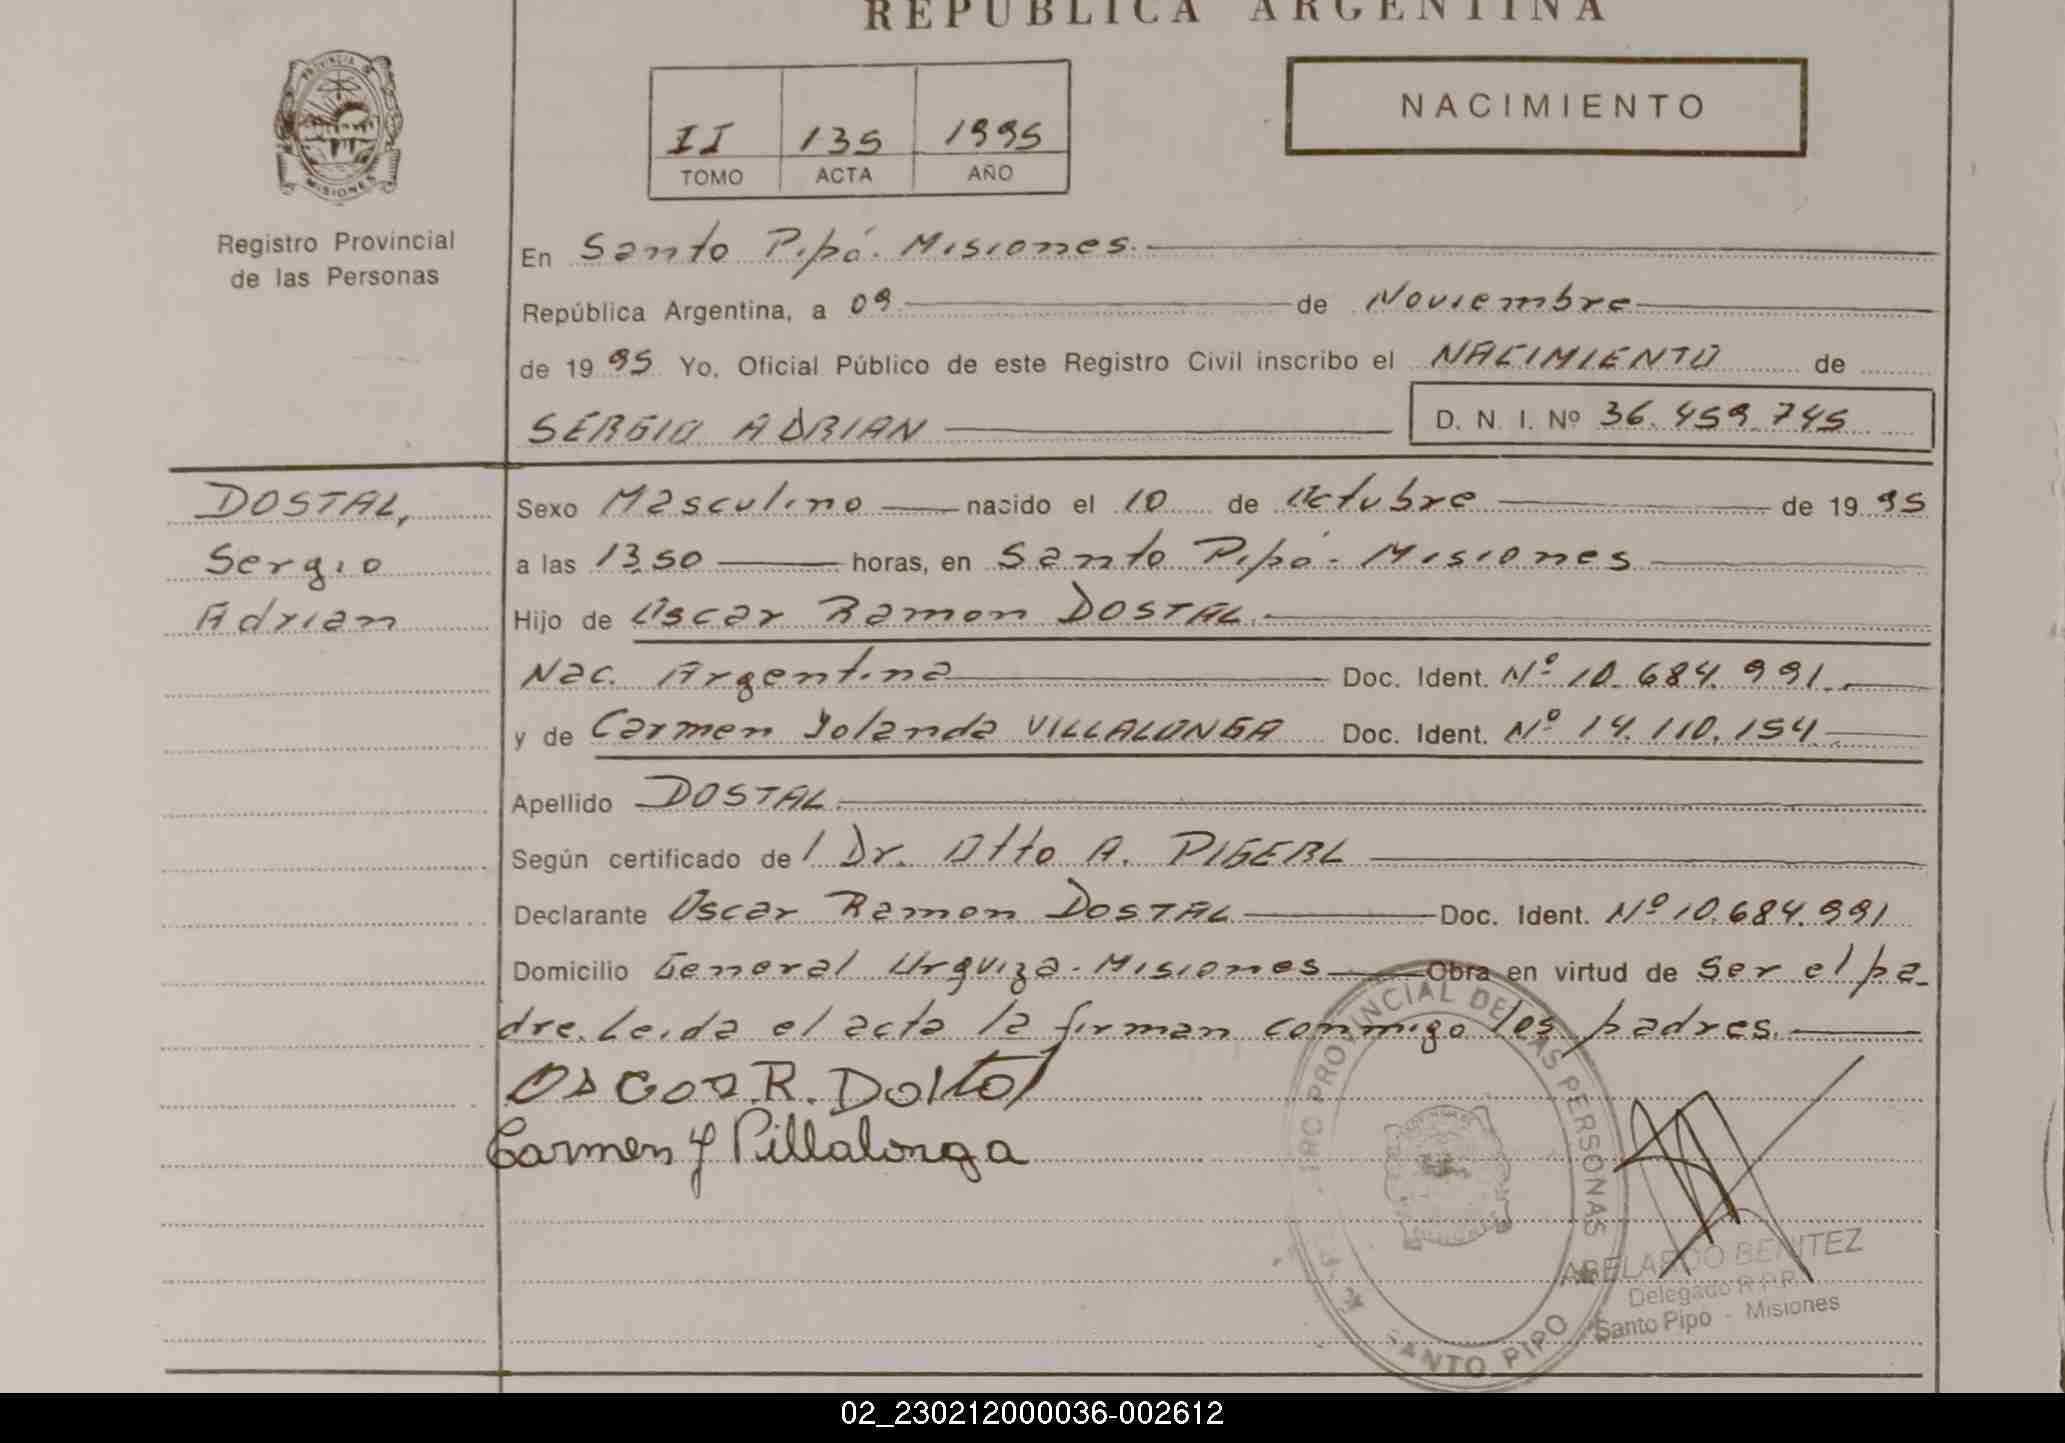 REPUBLICA ARGENTINA
PROVINCIA DE
MISIONES
Registro Provincial
de las Personas
II 135 1995
TOMO ACTA AÑO
NACIMIENTO
En Santo Pipó. Misiones.
República Argentina, a 09 de Noviembre
de 1995 Yo, Oficial Público de este Registro Civil inscribo el NACIMIENTO de
SERGIO ADRIAN D. N. I. Nº 36.459.745
DOSTAL,
Sergio
Adrian
Sexo Masculino nacido el 10 de Octubre de 1995
a las 13,50 horas, en Santo Pipó - Misiones
Hijo de Oscar Ramon DOSTAL.
Nac. Argentina Doc. Ident. Nº 10.684.991.
y de Carmen Yolanda VILLALONGA Doc. Ident. Nº 14.110.154
Apellido DOSTAL
Según certificado de Dr. Otto A. PIGERL
Declarante Oscar Ramon DOSTAL Doc. Ident. Nº 10.684.991
Domicilio General Urquiza - Misiones Obra en virtud de Ser el pa-
dre. Leida el acta la firman conmigo los padres.
Oscar R. Dostal
Carmen Y Villalonga
PROVINCIAL DE LAS PERSONAS
SANTO PIPO
ABELARDO BENITEZ
Delegado R.P.P.
Santo Pipó - Misiones
02_230212000036-002612